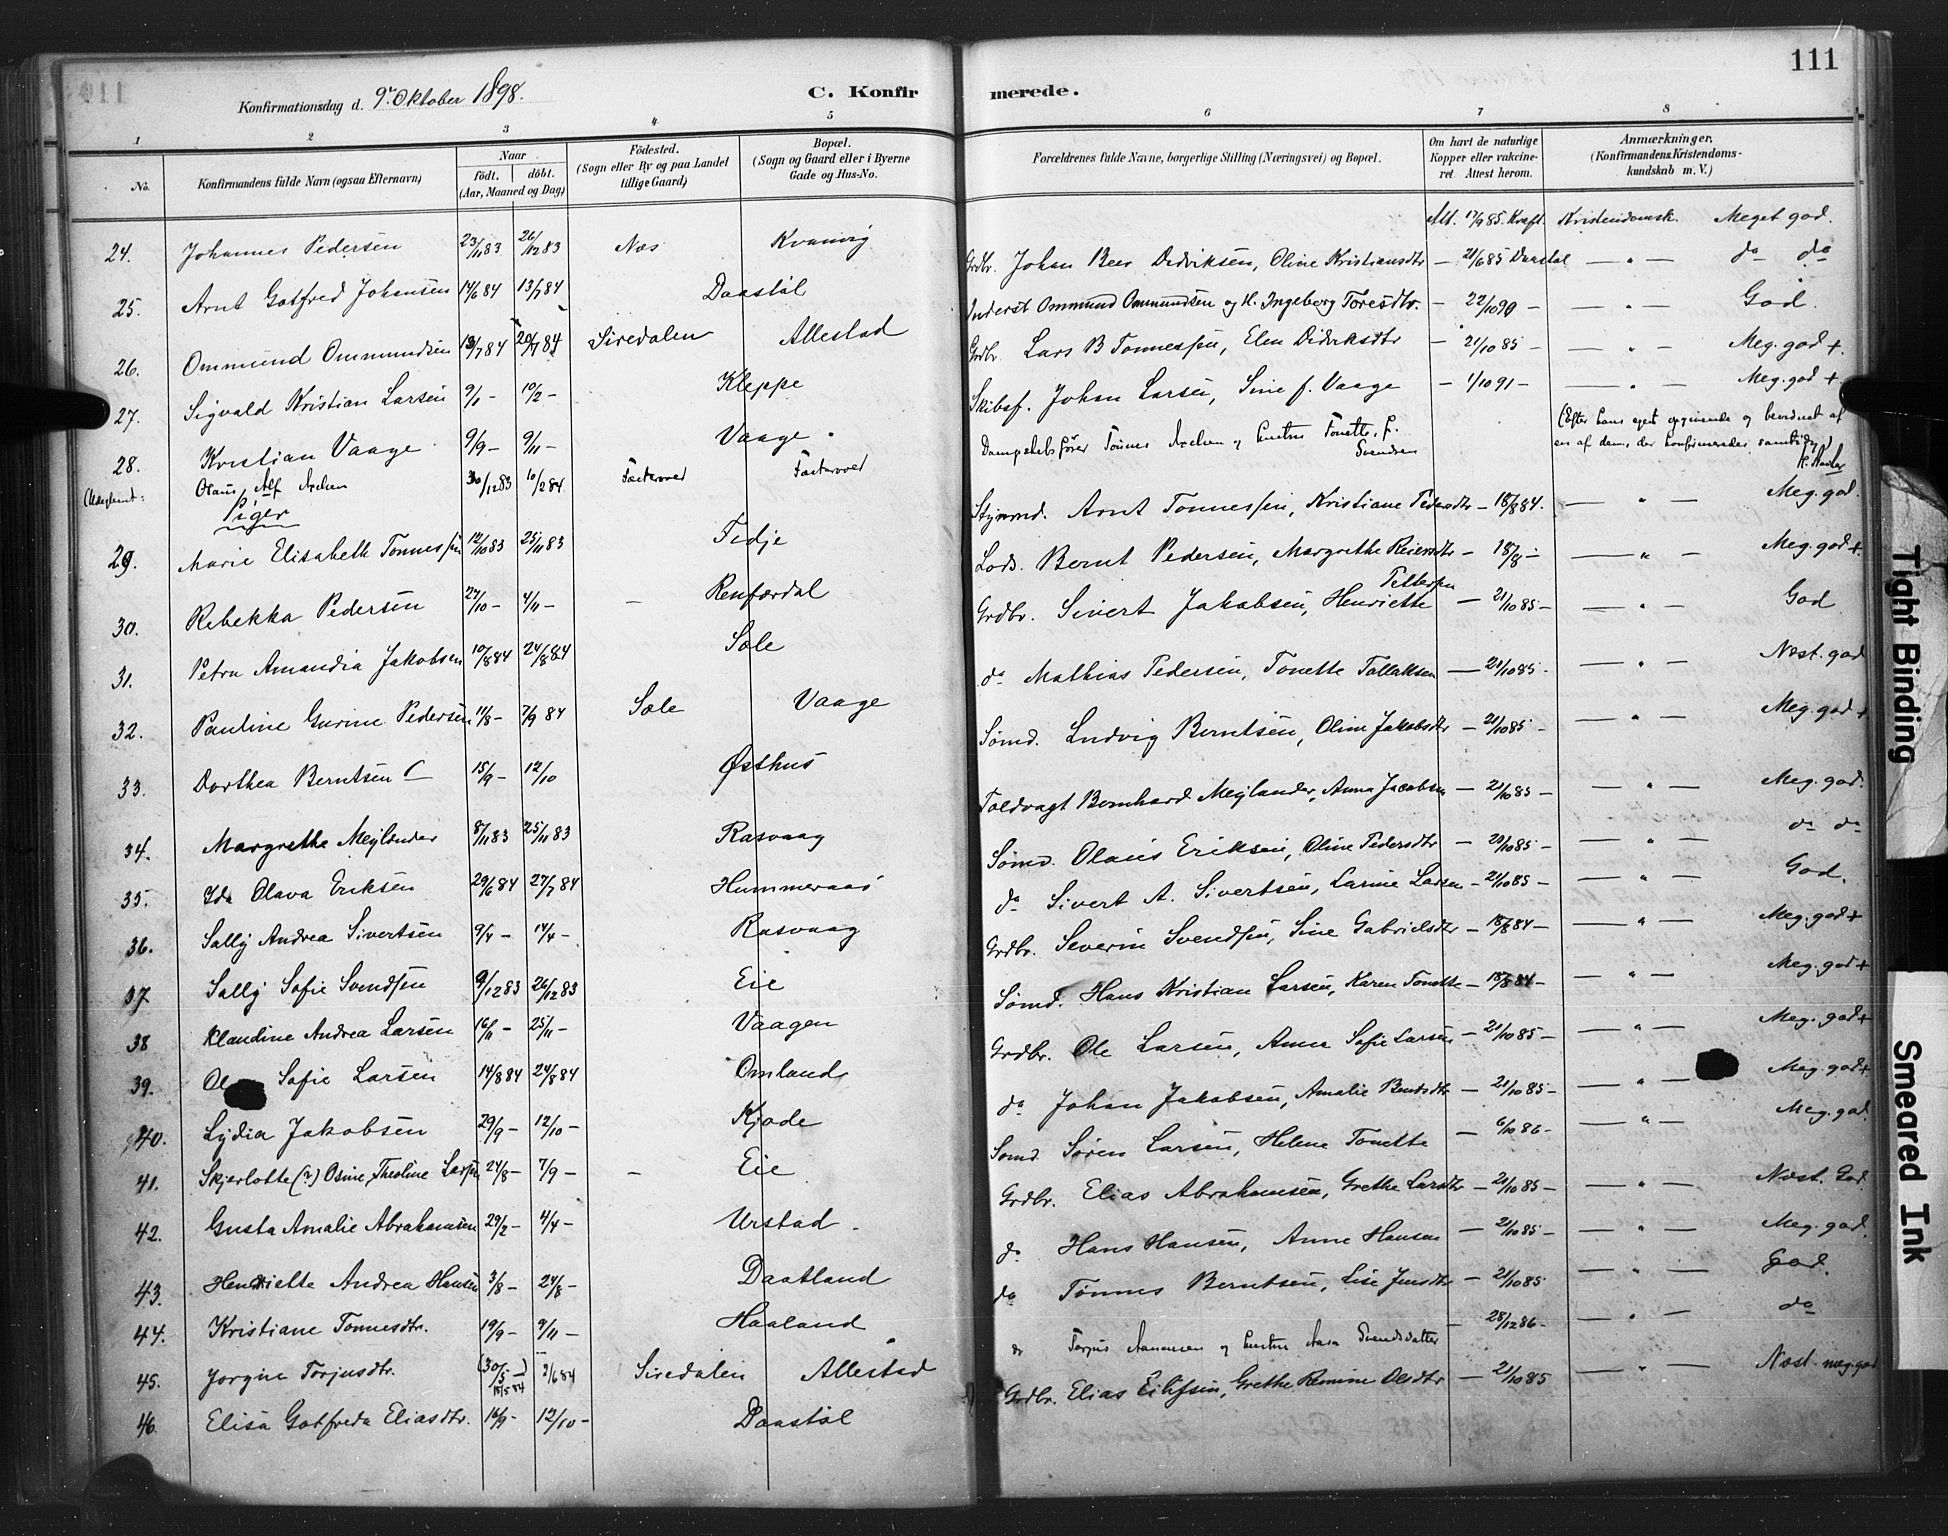 111
Konfirmationsdag d. 9. Oktober 1898.
C. Konfirmerede.
1 2 3 4 5 6 7 8
No. Konfirmandens fulde Navn (ogsaa Efternavn)
Naar født. døbt. (Aar, Maaned og Dag)
Födested. (Sogn eller By og paa Landet tillige Gaard)
Bopæl. (Sogn og Gaard eller i Byerne Gade og Hus-No.
Forældrenes fulde Navne, borgerlige Stilling (Næringsvei) og Bopæl.
Om havt de naturlige Kopper eller vakcineret Attest herom.
Anmærkninger. (Konfirmandens Kristendomskundskab m. V.)
24. Johannes Pedersen 23/11 83 26/12 83 Næs Kvanvig Att. 17/9 85 Kraft. Kristendomsk. Meget god.
25. Arnt Gotfred Johansen 14/6 84 13/7 84 Daastøl Grdbr. Johan Beer Didriksen, Oline Kristiansdtr — 21/6 85 Daastøl — " — do do
26. Ommund Ommundsen 13/7 84 20/7 84 Siredalen Allestad Inderst Ommund Ommundsen og H. Ingeborg Toresdtr. — 22/10 90 — — " — God.
27. Sigvald Kristian Larsen 9/1 — 10/2 — Kleppe Grdbr. Lars B Tonnessen, Elen Didriksdtr — 21/10 85 — — " — Meg. god +.
28. Kristian Vaage 9/9 — 9/11 — Vaage. Skibsf. Johan Larsen, Sine f. Vaage — 1/10 91 — — " — Meg. god +
Olaus Alf Axelsen 30/12 83 10/2 84 Dampskibsfører Tönnes Axelsen og Hustru Tonette, f. Svendsen
(Efter hans eget opgivende og bevidnet af en af dem, der konfirmeredes samtidig)
Piger
29. Marie Elisabeth Tonnessen 12/10 83 25/11 83 Fedje Styrmd. Arnt Tonnessen, Kristiane Pedersdtr — 18/8 84. — " — Meg. god.
30. Rebekka Pedersen 27/10 — 4/11 — — Renfærdal Lods. Bernt Pedersen, Margrethe Reiersdtr — 18/8 — — " — Meg. god +
31. Petra Amandia Jakobsen 10/8 84 24/8 84 Sæle Grdbr. Sivert Jakobsen, Henriette Pettersen — 21/10 85 — — " — God
32. Pauline Gurine Pedersen 11/8 — 7/9 84 Sæle Vaage do Mathias Pedersen, Tonette Tallaksen — 21/10 85 — — " — Næst. god
33. Dorthea Berntsen 15/9 — 12/10 Østhus Sømd. Ludvig Berntsen, Oline Jakobsdtr — 21/10 85 — — " — Meg. god +
34. Margrethe Mejlander 8/11 83 25/11 83 Rasvaag Toldvagt Bernhard Mejlander, Anna Jacobsen — 21/10 85 — — " — Meg. god.
35. Ida Olava Eriksen 29/6 84 27/7 84 Hummeraas Sømd. Olaus Eriksen, Oline Pedersdtr — 20/10 85 — — " — do do
36. Sally Andrea Sivertsen 9/4 — 14/4 — Rasvaag do Sivert A. Sivertsen, Larine Larsen — 21/10 85 — — " — God.
37 Sally Sofie Svendsen 9/12 83 26/12 83 Eie Grdbr. Severin Svendsen, Sine Gabrielsdtr — 18/8 84 — — " — Meg. god +
38 Klaudine Andrea Larsen 16/11 — 25/11 — Vaagen Sømd. Hans Kristian Larsen, Karen Tonette — 18/8 84 — — " — Meg. god +
39. Ol Sofie Larsen 14/8 84 24/8 84 Omland Grdbr. Ole Larsen, Anne Sofie Larsen — 21/10 85 — — " — Meg. god +
40. Lydia Jakobsen 29/9 — 12/10 — Kjøde do Johan Jakobsen, Amalie Berntsdtr — 21/10 85 — — " — Meg. god +
41. Skjerlotte (?) Osine Theoline Larsen 24/8 — 7/9 — — Eie Sømd. Søren Larsen, Helene Tonette — 6/10 86 — — " — Meg. god.
42. Gusta Amalie Abrahamsen 29/2 — 4/4 — Urstad. Grdbr. Elias Abrahamsen, Grethe Larsdtr — 21/10 85 — — " — Næst. God.
43. Henriette Andrea Hansen 3/8 — 24/8 — Daatland do Hans Hansen, Anne Hansen — 21/10 85 — — " — Meg. god.
44. Kristiane Tönnesdtr. 19/9 — 9/11 — Haaland do Tönnes Berntsen, Lise Jensdtr — 21/10 85 — " — God.
45. Jorgine Torjusdtr. (30/5 —) 18/5 84 2/6 84 Siredalen Allestad do Torjus Aanensen og Hustru Aasa Svendsdatter — 28/12 86 — — " — do
46. Elisa Gotfreda Eliasdtr. 16/9 — 12/10 — Daastøl Grdbr. Elias Eilifsen, Grethe Olsdtr — 21/10 85 — " — Næst. meg. god
Tight Binding
Smeared Ink